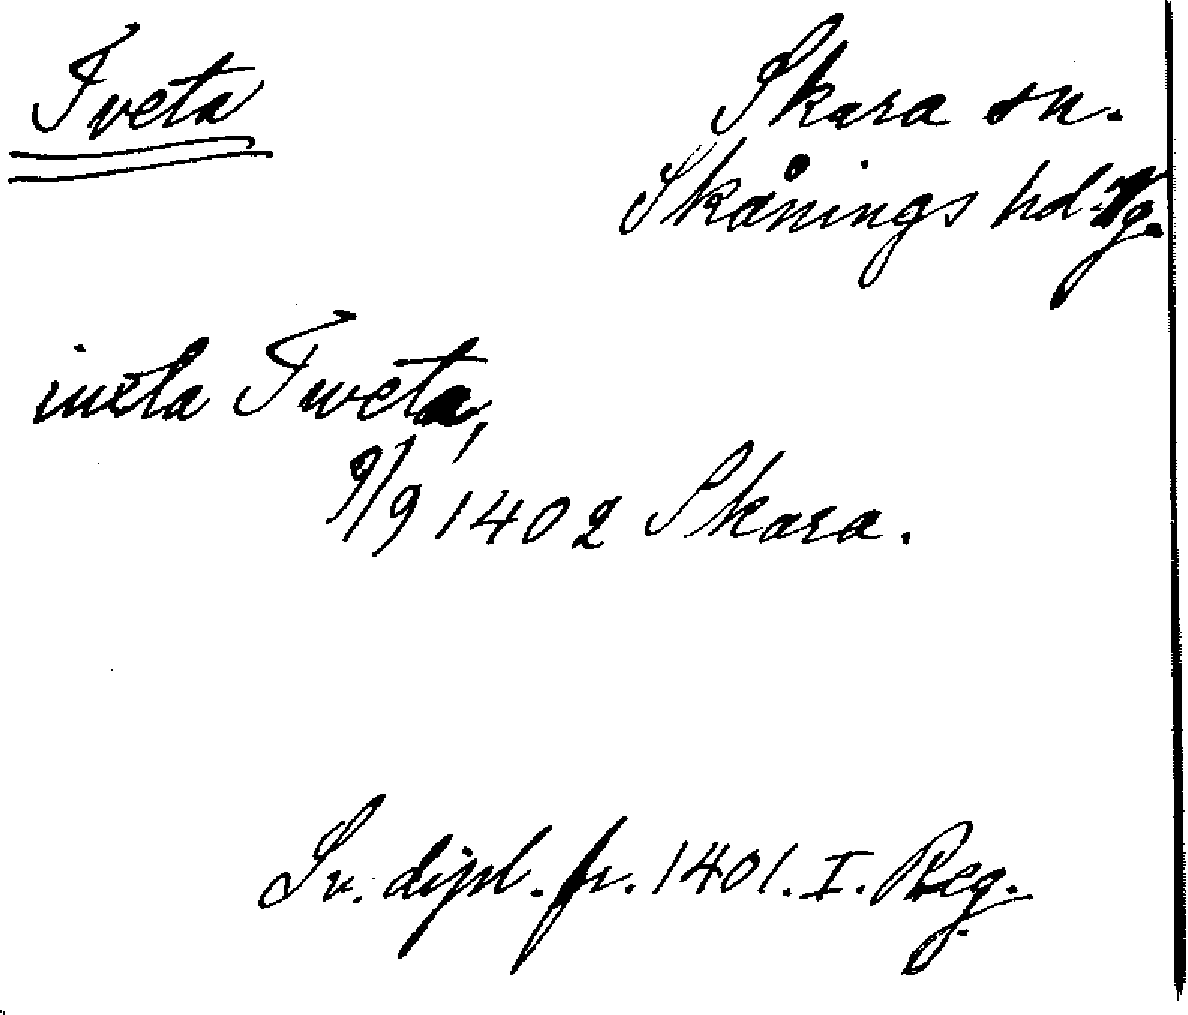 Tveta
Skara sn.
Skånings hd. Vg.
iuxta Tweta,
9/9 1402 Skara.
Sv. dipl. fr. 1401. I. Reg.